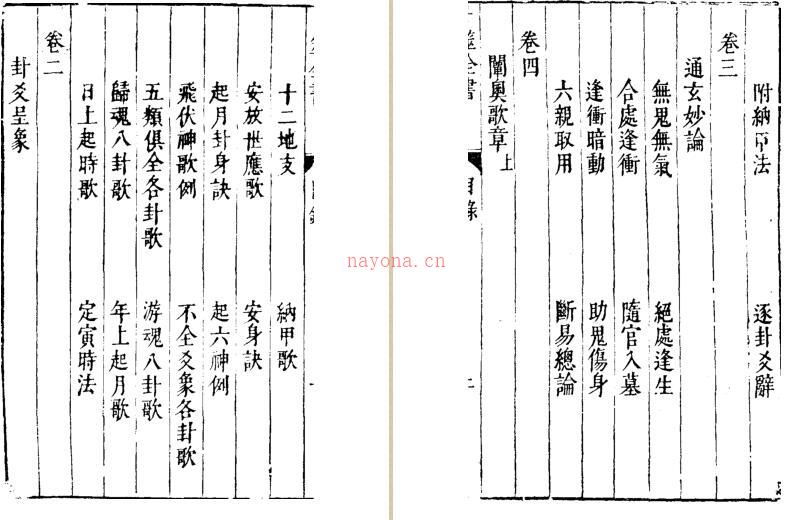 十二地支　納甲歌
安放世應歌　安身訣
起月卦身訣　起六神例
飛伏神歌例　不全爻象各卦歌
五類俱全各卦歌　游魂八卦歌
歸魂八卦歌　年上起月歌
日上起時歌　定寅時法
卷二
卦爻呈象
附納甲法　逐卦爻辭
卷三
通玄妙論
無鬼無氣　絕處逢生
合處逢衝　隨官入墓
逢衝暗動　助鬼傷身
六親取用　斷易總論
卷四
闡奧歌章上
全書　目錄
nayona.cn